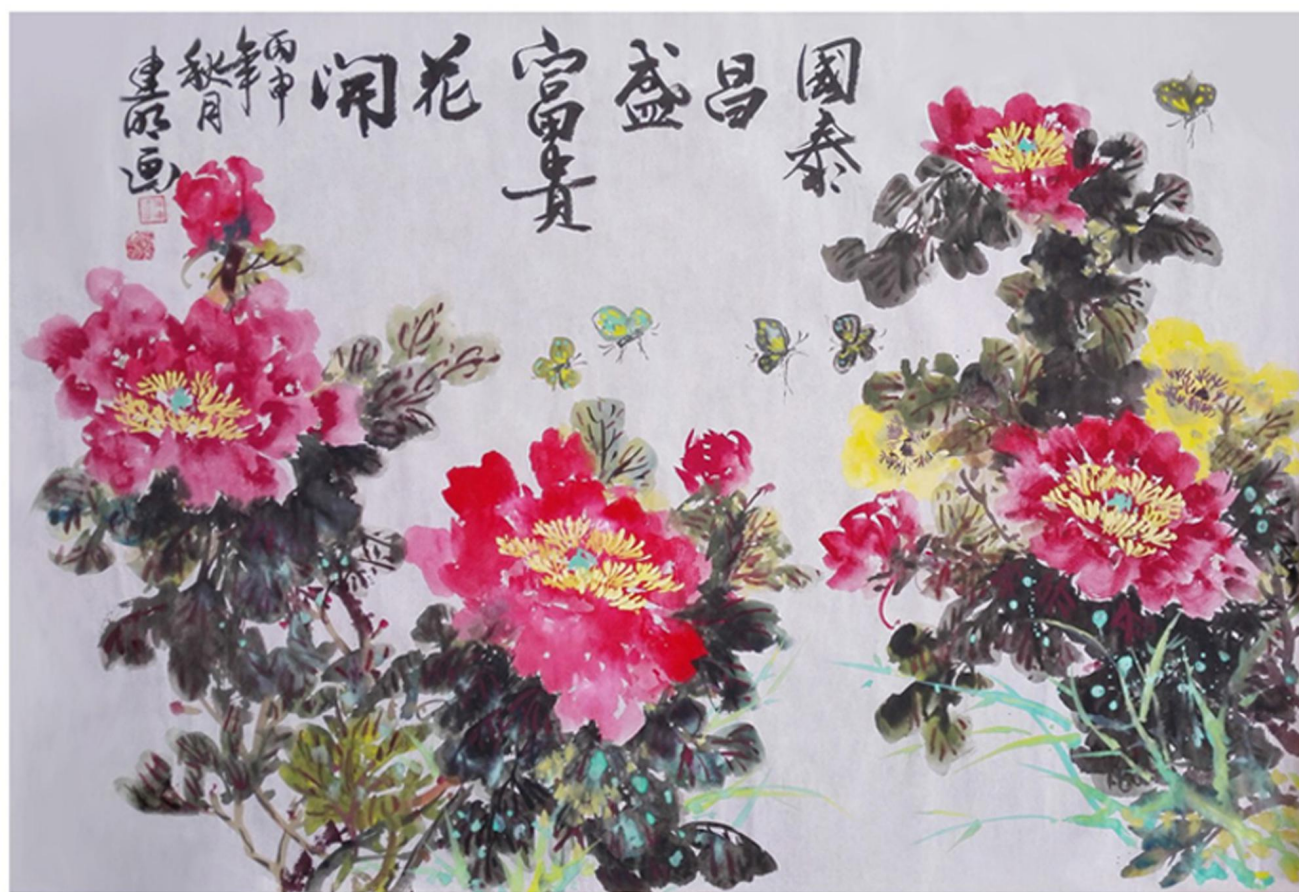 國泰昌盛富貴花開
丙申年
秋月
建明画